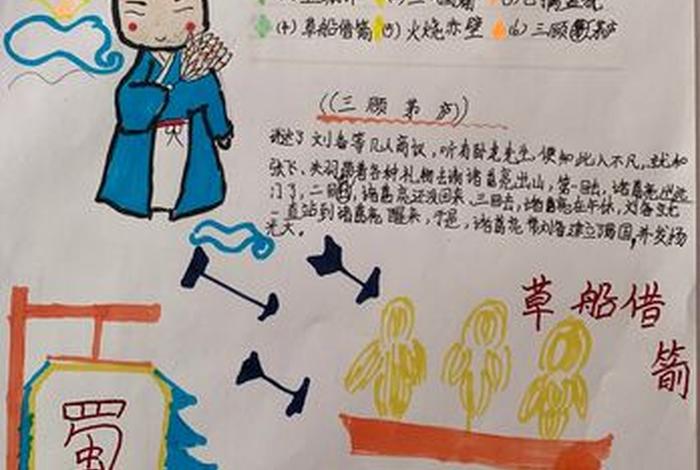 (4) 草船借箭 (5) 火烧赤壁 (6) 三顾茅庐
((三顾茅庐))
讲述了刘备等几人商议,听有卧龙先生,便知此人不凡,就和
张飞、关羽带着各种礼物去谢诸葛亮出山,第一回去,诸葛亮出远
门了,二回,诸葛亮还没回来,三回去,诸葛亮在午休,刘备
一直站到诸葛亮醒来,于是,诸葛亮帮刘备建立了蜀国,并发扬
光大。
草船借
箭
蜀